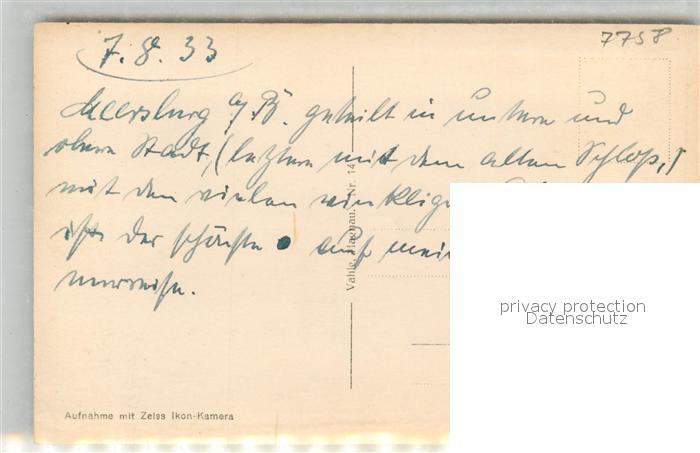 7758
7.8.33
Meersburg a/B. geteilt in untere und
obere Stadt, (letztere mit dem alten Schloß,)
mit den vielen winkligen
ist der schönste • auf mei
Vahle, Hagnau. Nr. 14
privacy protection
Datenschutz
Aufnahme mit Zeiss Ikon-Kamera